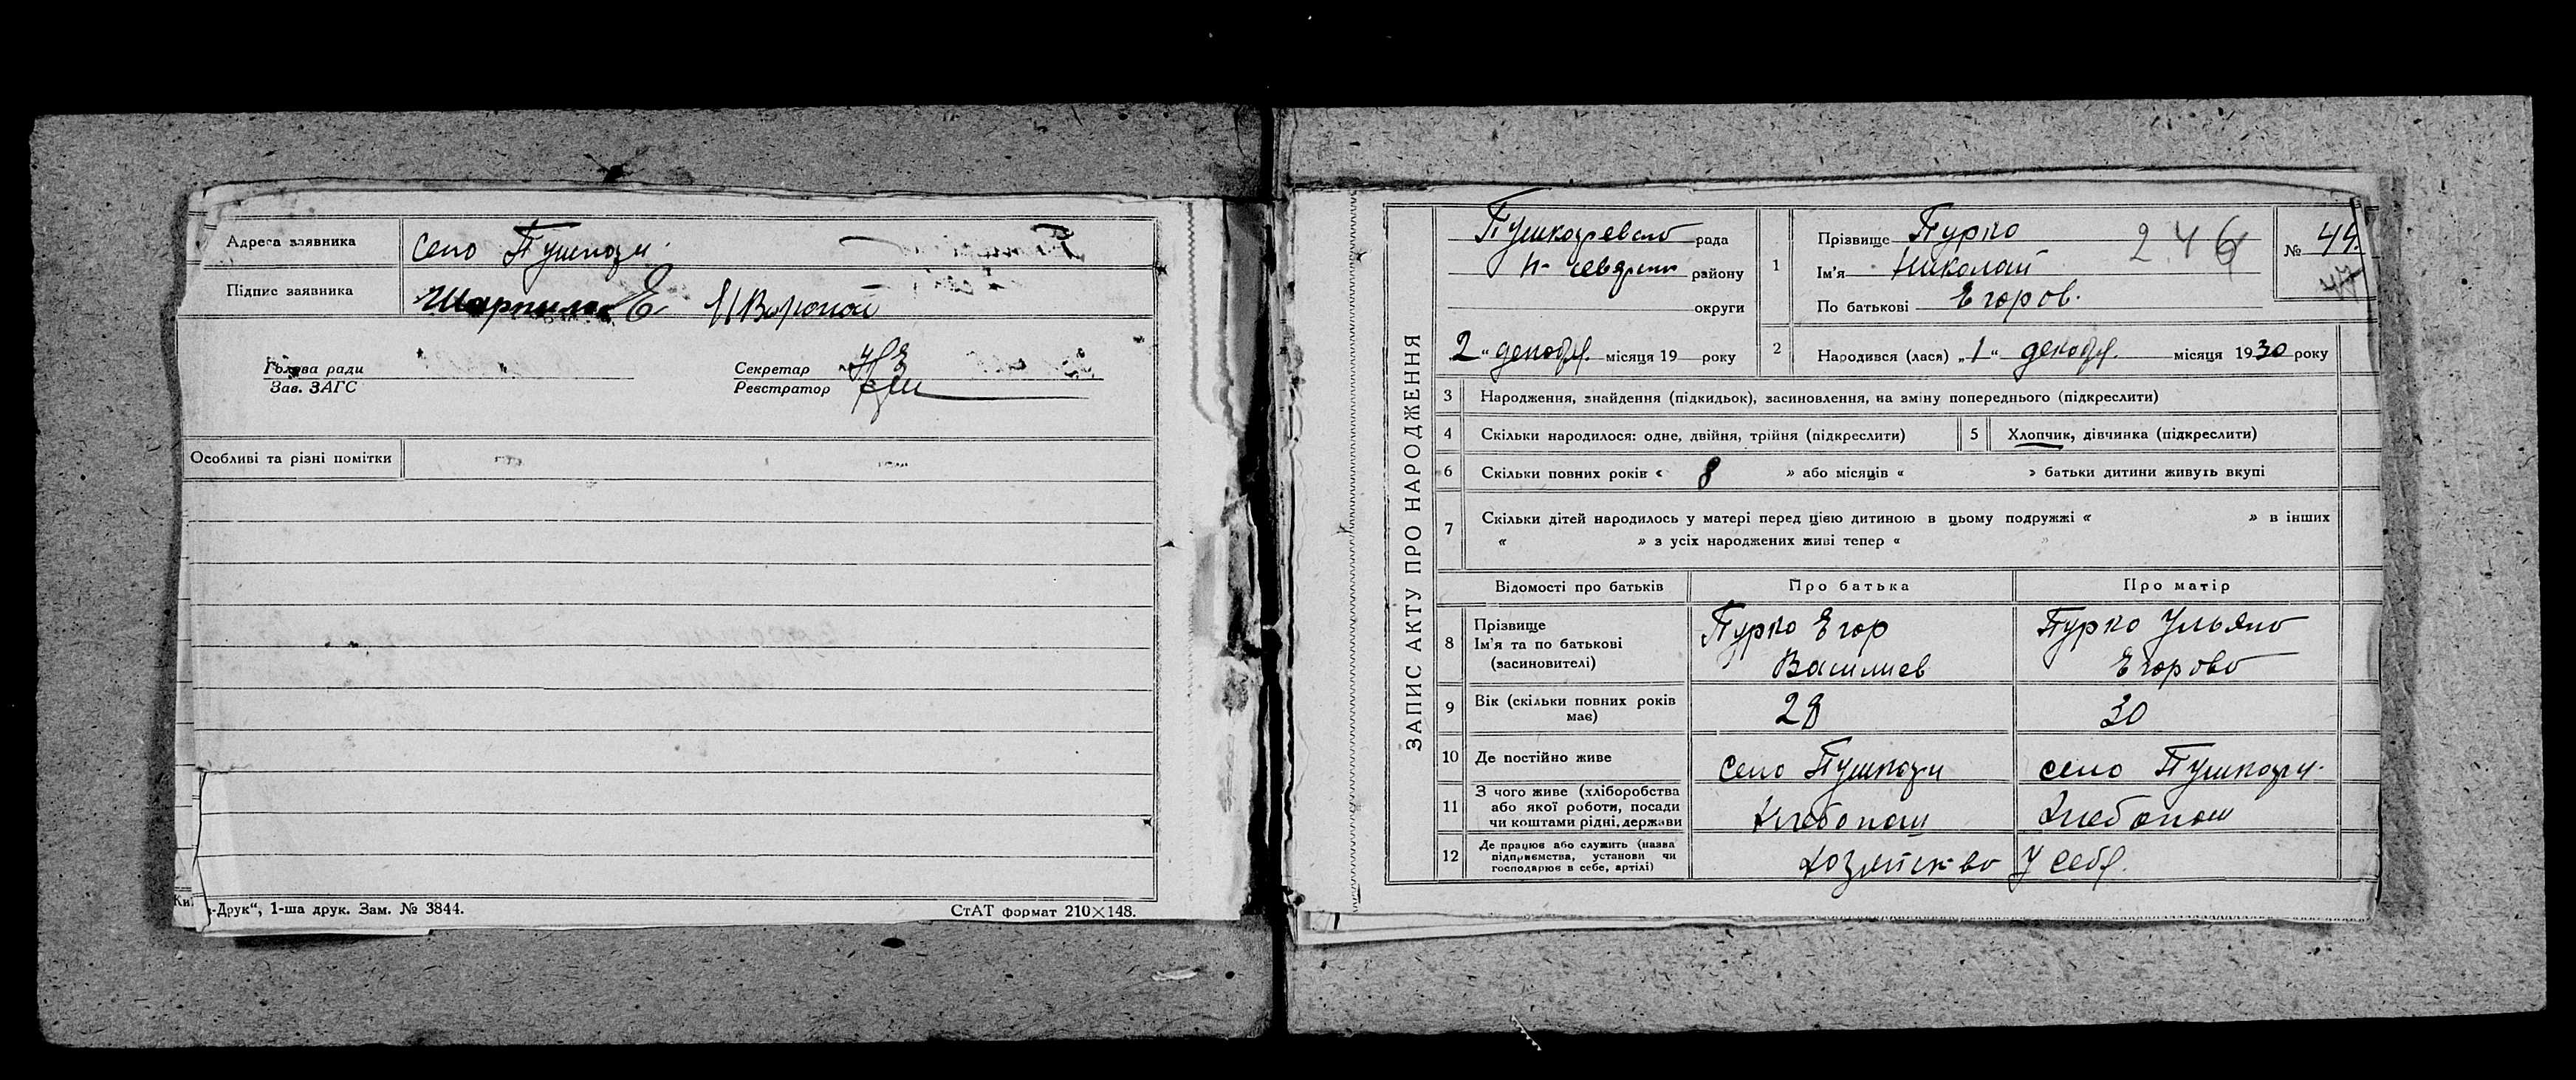 Адреса заявника село Пушкари
Підпис заявника
Голова ради
Зав. ЗАГС
Секретар
Реєстратор
Особливі та різні помітки
-Друк“, 1-ша друк. Зам. № 3844.
СтАТ формат 210×148.
ЗАПИС АКТУ ПРО НАРОДЖЕННЯ
рада
району
округи
2 “ декабр. місяця 19 року
1 Прізвище Пурко
Ім'я Николай
По батькові Егоров.
246
№ 44
47
2 Народився (лася) „ 1 “ декабр. місяця 1930 року
3 Народження, знайдення (підкидьок), засиновлення, на зміну попереднього (підкреслити)
4 Скільки народилося: одне, двійня, трійня (підкреслити)
5 Хлопчик, дівчинка (підкреслити)
6 Скільки повних років « 8 » або місяців « » батьки дитини живуть вкупі
7 Скільки дітей народилось у матері перед цією дитиною в цьому подружжі « » в інших
« » з усіх народжених живі тепер « »
Відомості про батьків Про батька Про матір
8 Прізвище
Ім'я та по батькові
(засиновителі)
Пурко Егор
Василиев
Пурко Ульяно
Егорово
9 Вік (скільки повних років
має)
28
30
10 Де постійно живе село Пушкари село Пушкари
11 З чого живе (хліборобства
або якої роботи, посади
чи коштами рідні, держави
Хлебопаш
Хлебопаш
12 Де працює або служить (назва
підприємства, установи чи
господарює в себе, артілі)
хозяйство У себя.